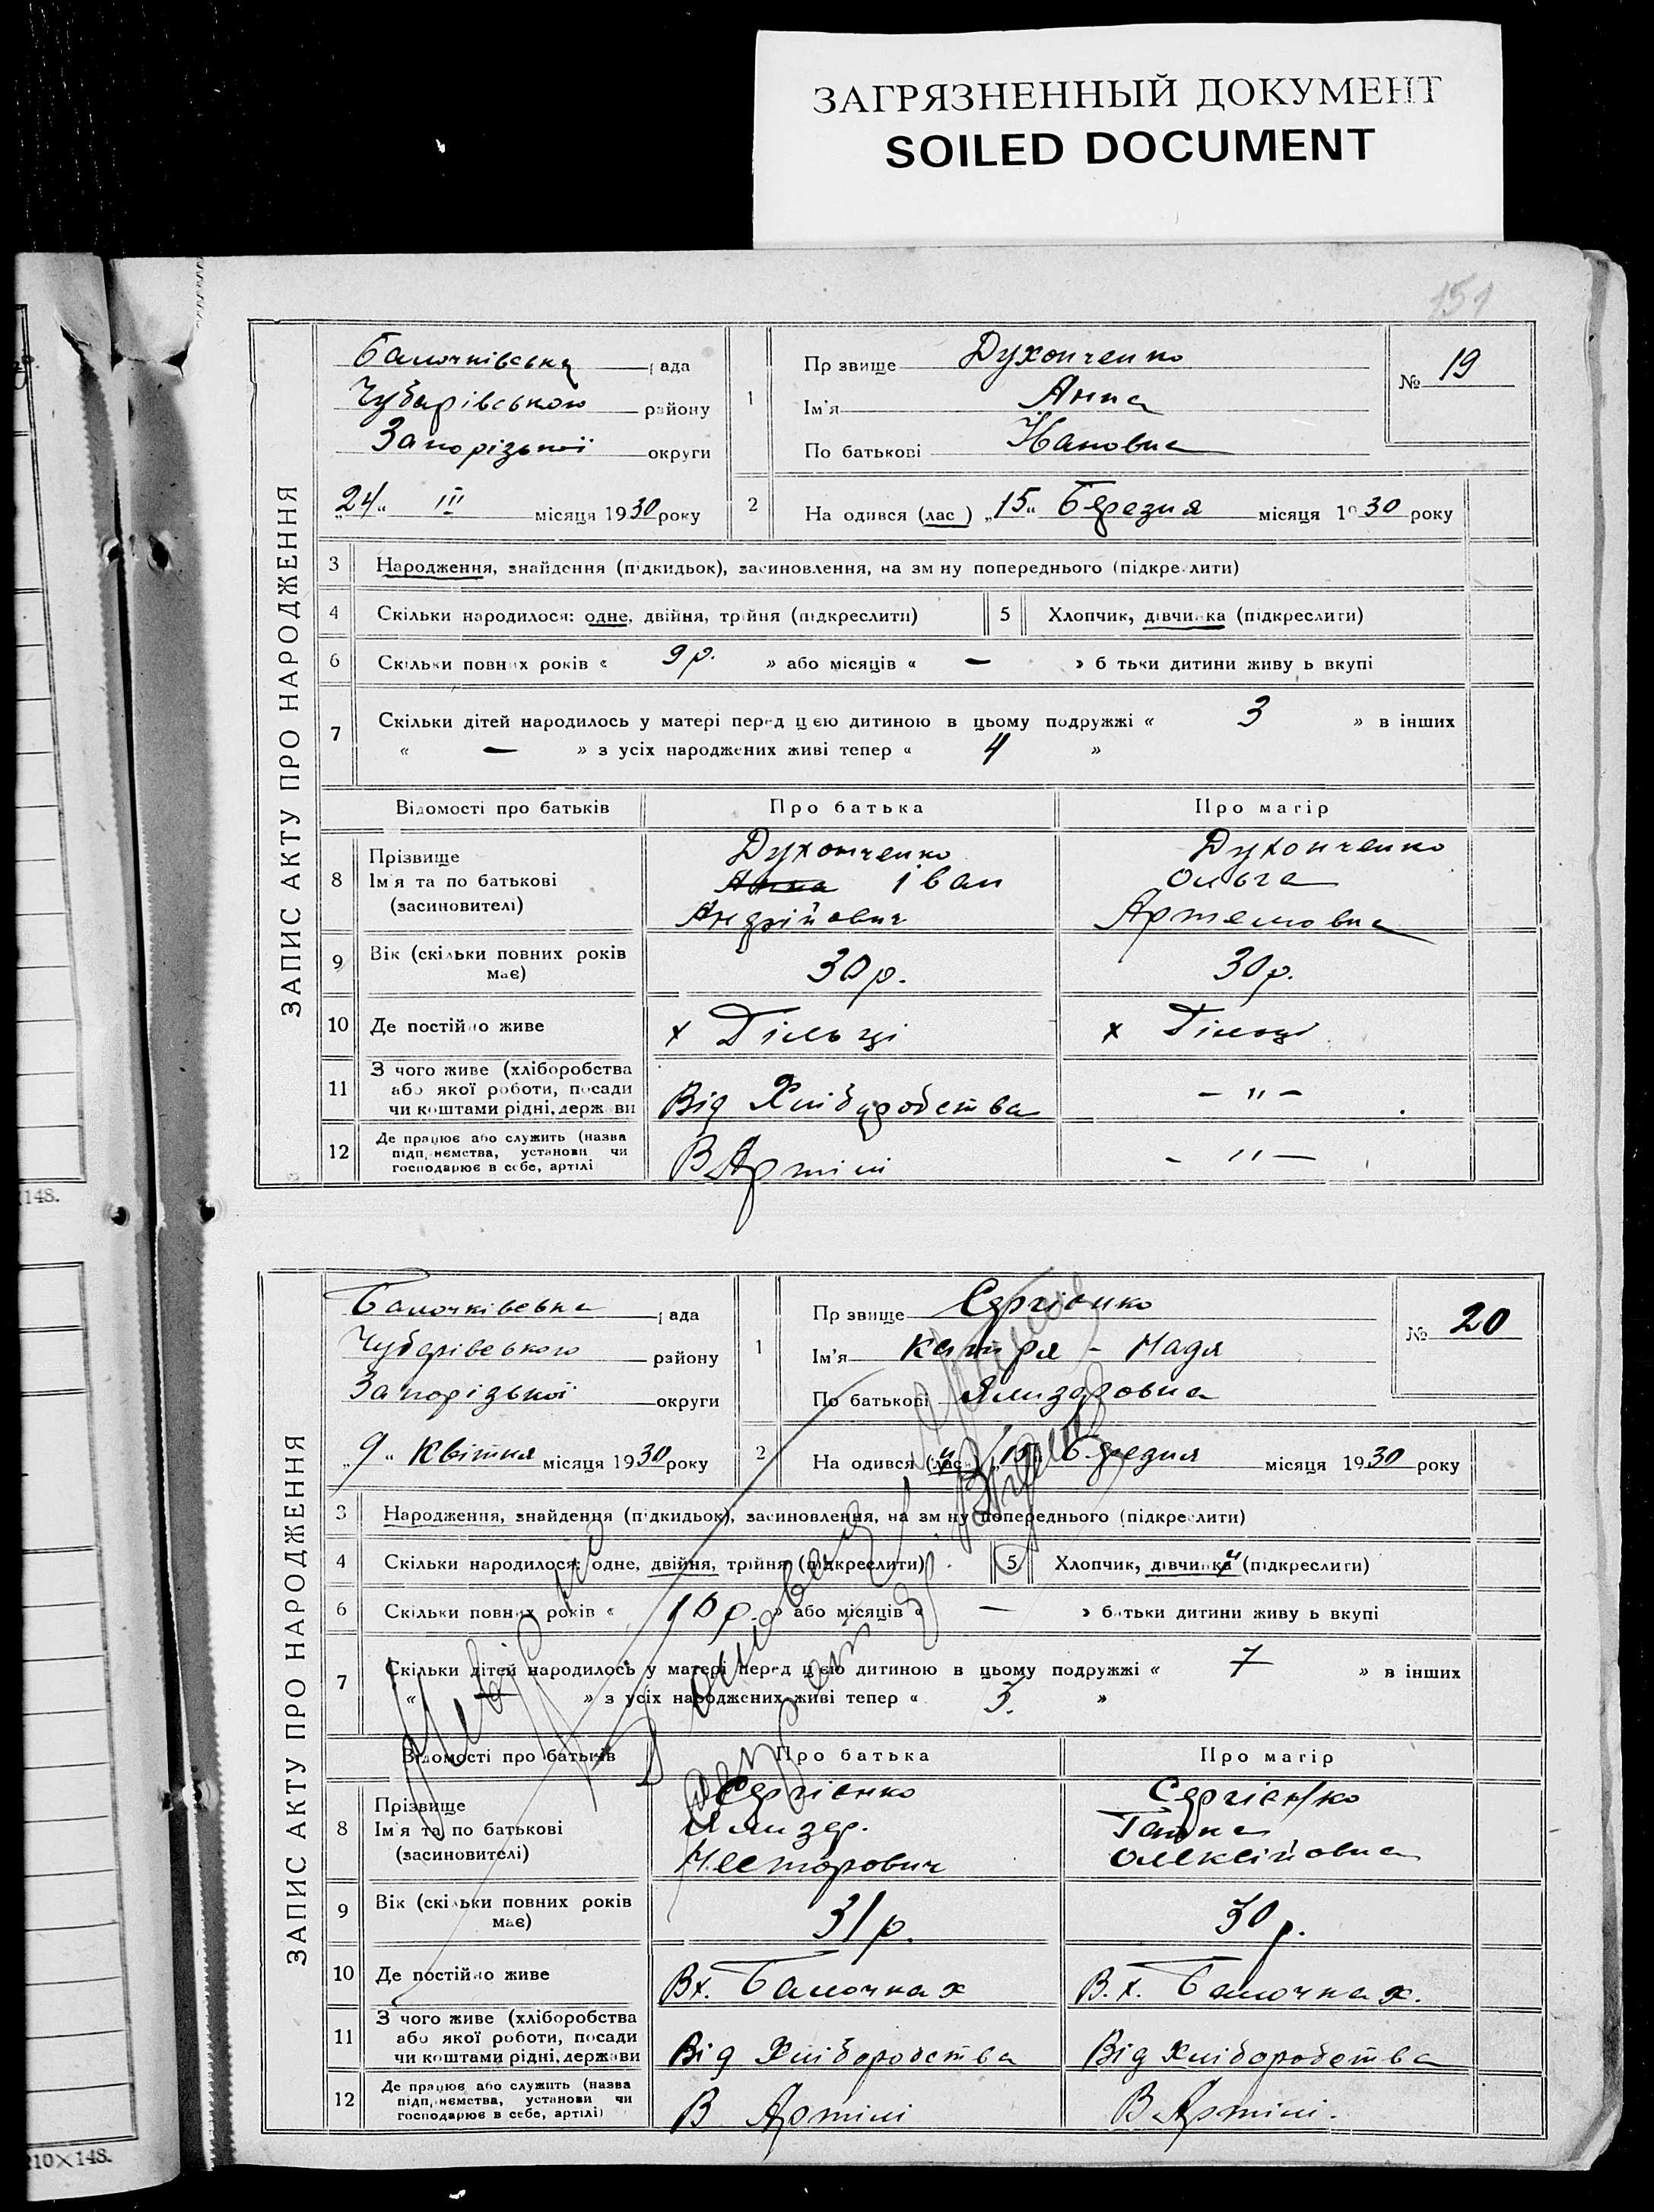 ЗАГРЯЗНЕННЫЙ ДОКУМЕНТ
SOILED DOCUMENT
151
ЗАПИС АКТУ ПРО НАРОДЖЕННЯ
Балочківська рада
Чубарівського району
Запорізької округи
„24“ III місяця 1930 року
1 Прізвище Духонченко
Ім'я Анна
По батькові Івановна
№ 19
2 Народився (лас) „15“ Березня місяця 1930 року
3 Народження, знайдення (підкидьок), засиновлення, на зміну попереднього (підкреслити)
4 Скільки народилося: одне, двійня, трійня (підкреслити)
5 Хлопчик, дівчинка (підкреслити)
6 Скільки повних років « 9 р. » або місяців « — » батьки дитини живуть вкупі
7 Скільки дітей народилось у матері перед цією дитиною в цьому подружжі « 3 » в інших
« — » з усіх народжених живі тепер « 4 »
Відомості про батьків Про батька Про матір
8 Прізвище Духонченко Духонченко
Ім'я та по батькові Анна Іван Ольга
(засиновителі) Андрійович Артемовна
9 Вік (скільки повних років
має) 30 р. 30 р.
10 Де постійно живе х Гільці х Гільці
11 З чого живе (хліборобства
або якої роботи, посади
чи коштами рідні, держави Від Хліборобства — " —
12 Де працює або служить (назва
підприємства, установи чи
господарює в себе, артілі В Артілі — " —
148.
ЗАПИС АКТУ ПРО НАРОДЖЕННЯ
Балочківська рада
Чубарівського району
Запорізької округи
„9“ Квітня місяця 1930 року
1 Прізвище Сергієнко
Ім'я Катря - Надя
По батькові Ялизаровна
№ 20
2 Народився (лас „15“ Березня місяця 1930 року
3 Народження, знайдення (підкидьок), засиновлення, на зміну попереднього (підкреслити)
4 Скільки народилося: одне, двійня, трійня (підкреслити)
5 Хлопчик, дівчинки (підкреслити)
6 Скільки повних років « 10 р. » або місяців « — » батьки дитини живуть вкупі
7 Скільки дітей народилось у матері перед цією дитиною в цьому подружжі « 7 » в інших
« — » з усіх народжених живі тепер « 5. »
Відомості про батьків Про батька Про матір
8 Прізвище Сергієнко Сергієнко
Ім'я та по батькові Ялизар. Ганна
(засиновителі) Несторович Олексійовна
9 Вік (скільки повних років
має) 31 р. 30 р.
10 Де постійно живе В х. Балочках В. х. Балочках.
11 З чого живе (хліборобства
або якої роботи, посади
чи коштами рідні, держави Від Хліборобства Від Хліборобства
12 Де працює або служить (назва
підприємства, установи чи
господарює в себе, артілі) В Артілі В Артілі.
210×148.